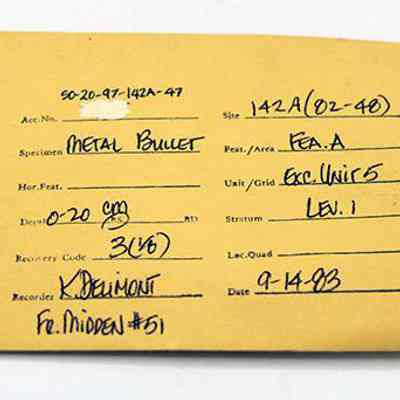 50-20-97-142A-47
Acc.No.
Specimen METAL BULLET
Hor.Feat.
Depth 0-20 cm BD
Recovery Code 3(1/8)
Recorder K.DELIMONT
FR. MIDDEN #51
Site 142A(82-48)
Feat./Area FEA. A
Unit/Grid EXC. UNIT 5
Stratum LEV. 1
Loc.Quad
Date 9-14-83